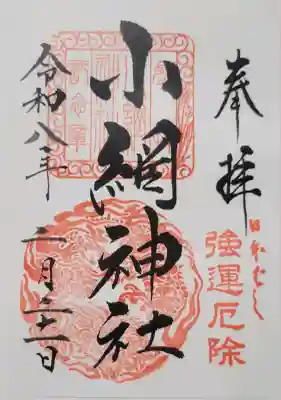 奉拝
日本ばし
強運厄除
小網神社
令和八年二月二十一日